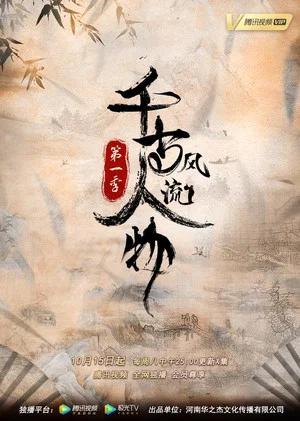 腾讯视频 VIP
千古风流人物
第一季
10月15日起
腾讯视频 全网独播 会员尊享
独播平台： 腾讯视频 极光TV 出品单位：河南华之杰文化传播有限公司